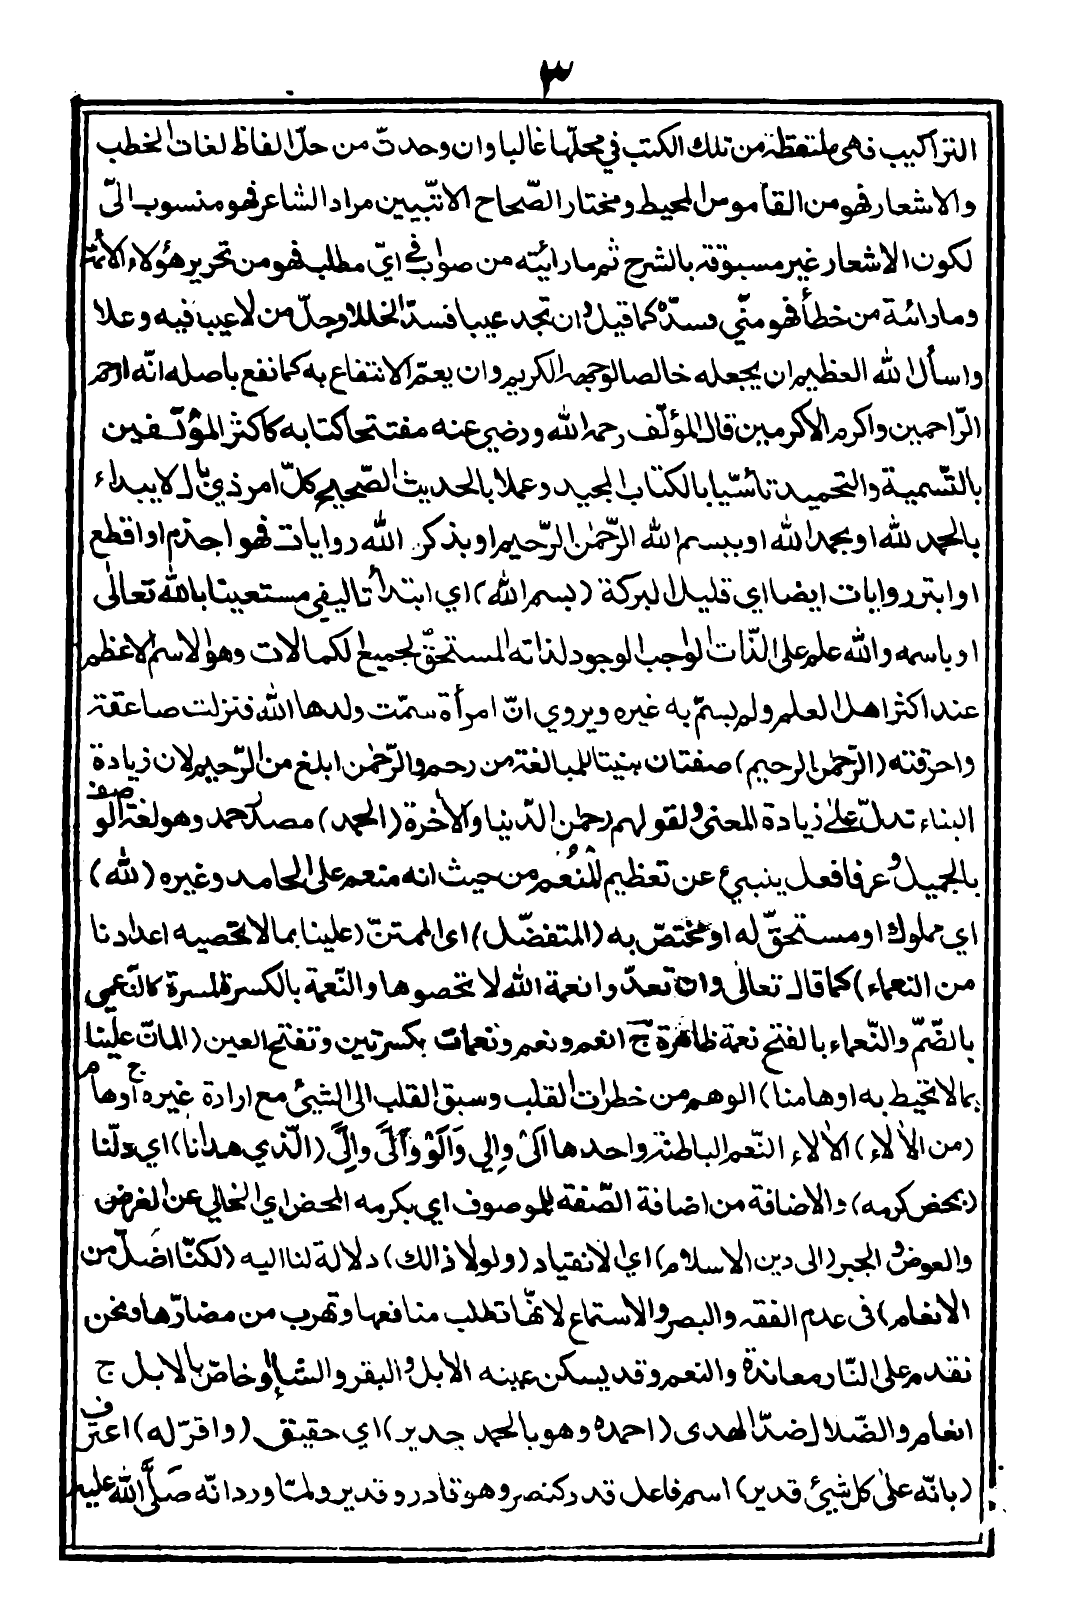 ٣
التراكيب فهى ملتقطة من تلك الكتب في محلّها غالبا وان وحدتّ من حلّ الفاظ لغات الخطب
والاشعار فهو من القأموس المحيط ومختار الصّحاح الا تبيين مراد الشاعر فهو منسوب الىّ
لكون الاشعار غير مسبوقة بالشرح ثم ما رائيته من صواب في ايّ مطلب فهو من تحرير هؤلاء الأئمّة
وما رائتة من خطأ فهو منّي فسدّه كما قيل وان تجد عيبا فسدّ الخللا وجلّ من لا عيب فيه وعلا
واسأل الله العظيم ان يجعله خالصا لوجهه الكريم وان يعمّ الانتفاع به كما نفع باصله انّه ارحم
الرّاحمين واكرم الاكرمين قال المؤلّف رحمه الله ورضي عنه مفتتحا كتابه كاكثر المؤلّفين
بالتّسمية والتحميد تأسّيا بالكتاب المجيد وعملا بالحديث الصّحيح كلّ امر ذي بال لا يبداء
بالحمد لله او بحمد الله او ببسم الله الرّحمٰن الرّحيم او بذكر الله روايات فهو اجذم او اقطع
او ابتر روايات ايضا اي قليل البركة (بسم الله) اي ابتدأ تاليفي مستعينا بالله تعالى
او باسمه والله علم على الذّات الواجب الوجود لذاته المستحقّ لجميع الكمالات وهو الاسم الاعظم
عند اكثر اهل العلم ولم يسمّ به غيره ويروي انّ امرأة سمّت ولدها الله فنزلت صاعقة
واحرقته (الرّحمٰن الرحيم) صفتان بنيتا للمبالغة من رحم والرّحمٰن ابلغ من الرّحيم لان زيادة
البناء تدلّ علىٰ زيادة المعنى ولقولهم رحمٰن الدّنيا والأخرة (الحمد) مصدر حمد وهو لغة الوصف
بالجميل وعرفا فعل ينبيء عن تعظيم المُنعم من حيث انه منعم على الحامد وغيره (لله)
اي مملوك او مستحقّ له او مختصّ به (المتفضّل) اى الممتنّ (علينا بما لا تحصيه اعدادنا
من النعماء) كما قال تعالى وان تعدّوا نعمة الله لا تحصوها والنّعمة بالكسر المسرة كالنّعمي
بالضّمّ والنّعماء بالفتح نعمة ظاهرة ج انعم ونعم ونعمات بكسرتين وتفتح العين (المانّ علينا
بما لا تحيط به اوهامنا) الوهم من خطرات القلب وسبق القلب الى الشيئ مع ارادة غيره ج اوهام
(من الألاء) الألاء النّعم الباطنة واحدها الىً والي وَالَوْ وأَلىً والىً (الّذي هدانا) اي دلّنا
(بمحض كرمه) والاضافة من اضافة الصّفة للموصوف اي بكرمه المحض اي الخالي عن الغرض
والعوض والجبر (الى دين الاسلام) اي الانقياد (ولولا ذالك) دلالة لنا اليه (لكنّا اضلّ من
الانعام) فى عدم الفقه والبصر والاستماع لانّها تطلب منافعها وتهرب من مضارّها ونحن
نقدم على النّار معاندة والنعم وقد يسكن عينه الأبل والبقر والشاء او خاصّ بالابل ج
انعام والضّلال ضدّ الهدى (احمده وهو بالحمد جدير) اي حقيق (واقرّ له) اعترف
(بانّه علىٰ كل شيئ قدير) اسم فاعل قدر كنصر وهو قادر وقدير ولمّا ورد انّه صَلَّى الله عليه